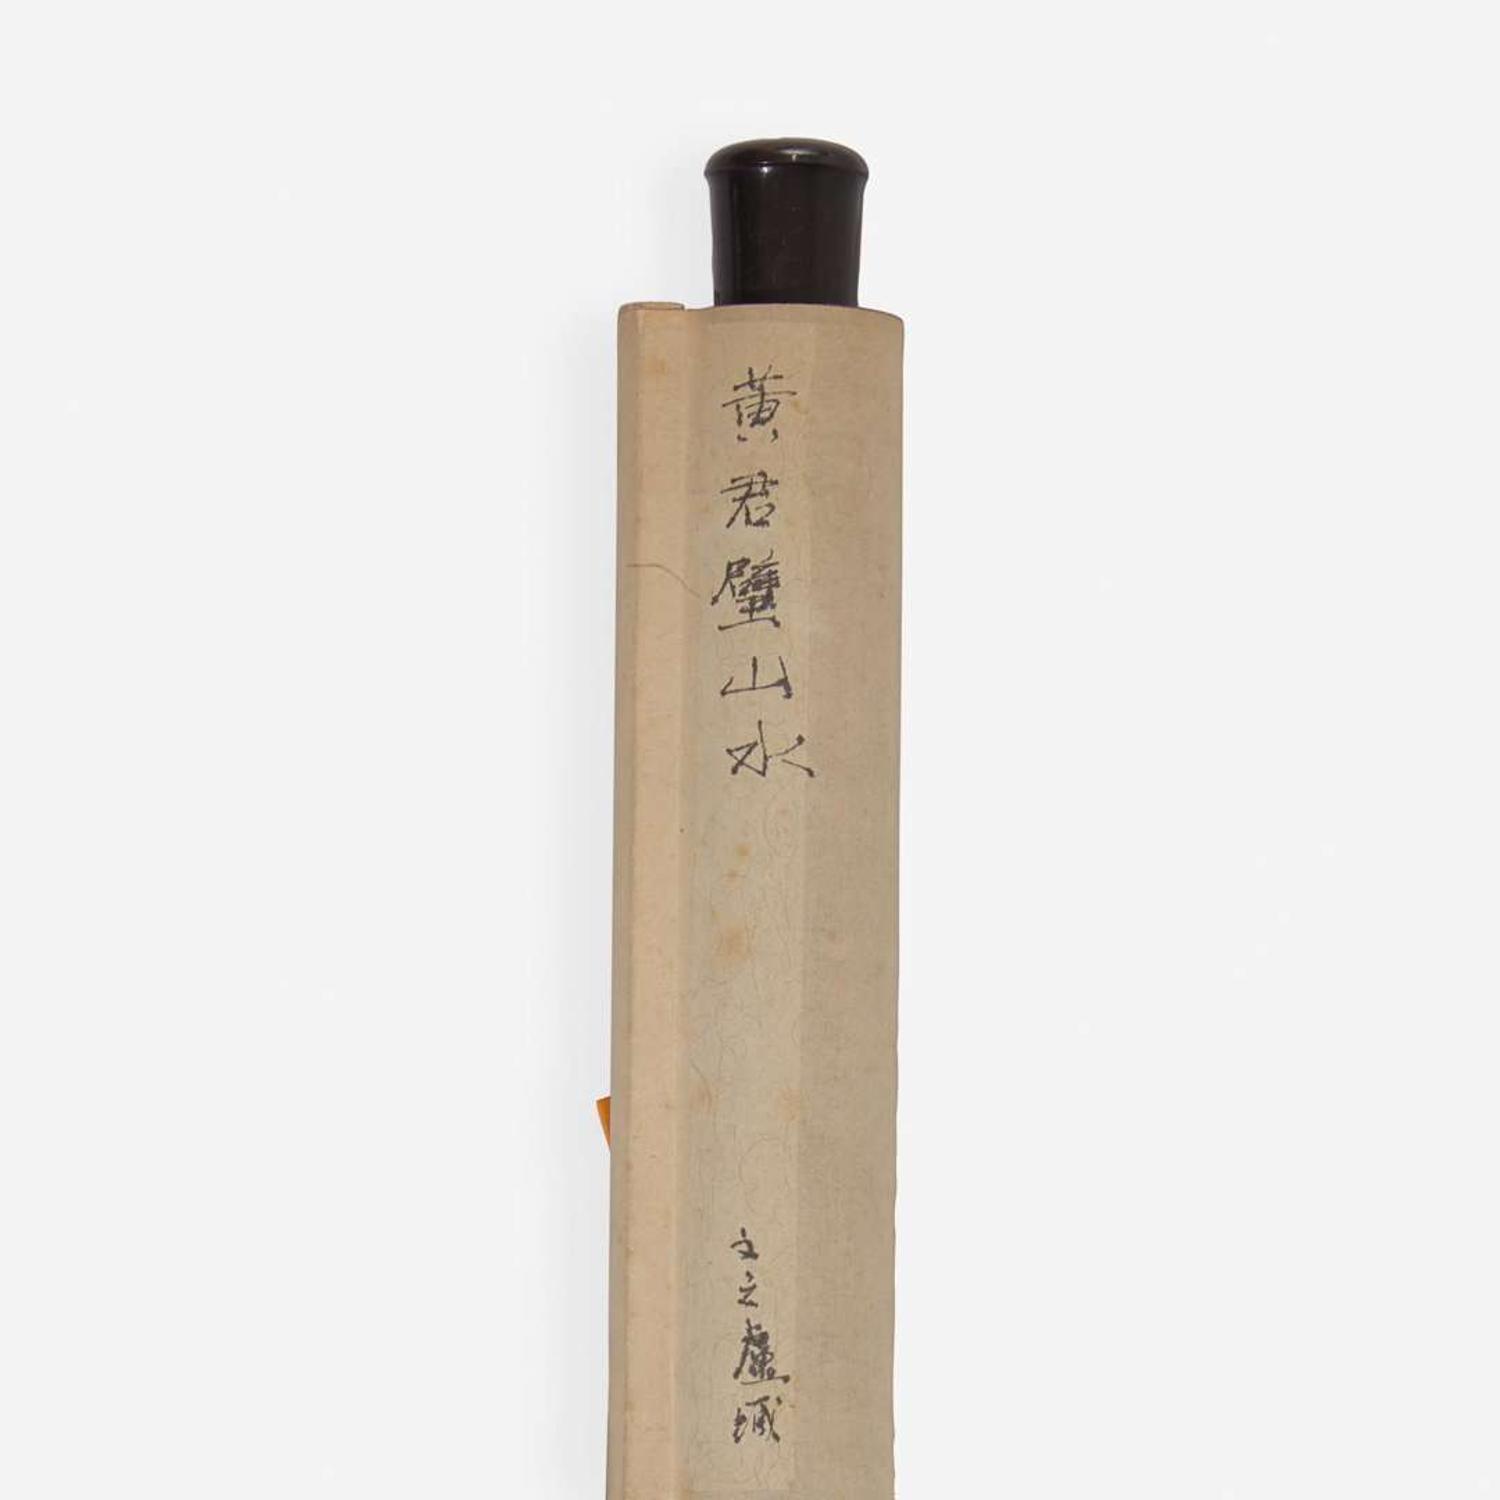 黄君璧山水
文之廬緘